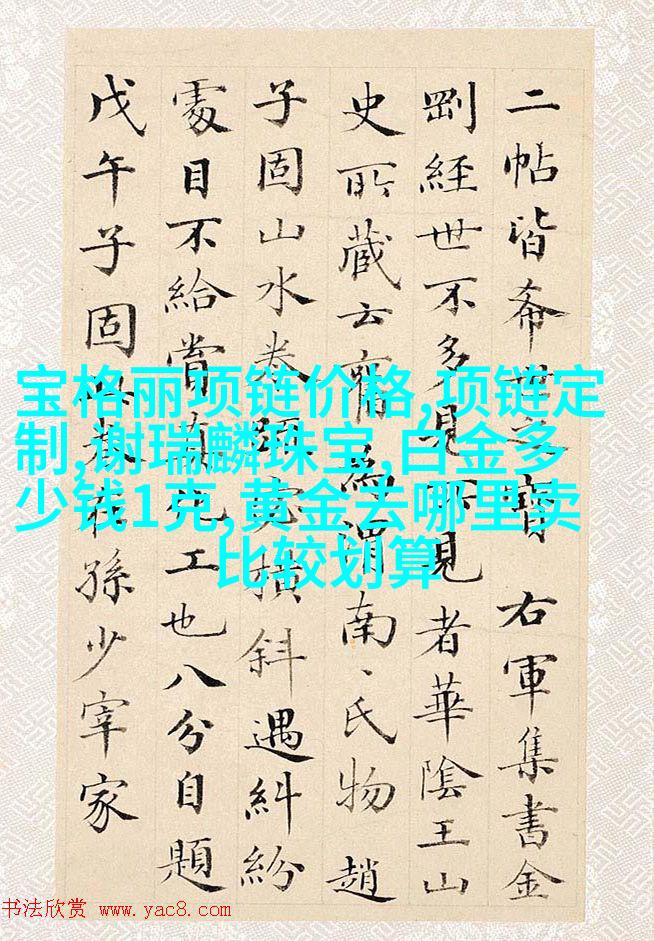 二帖皆希世之寶 右軍集書金
剛經世不多見所見者華陰王山
史所藏云爲渭南、氏物 趙
子固山水卷橫斜遇糾紛
處目不給賞真化工也八分自題
戊午子固孫少宰家
宝格丽项链价格,项链定
制,谢瑞麟珠宝,白金多
少钱1克,黄金去哪里卖
比较划算
书法欣赏 www.yac8.com